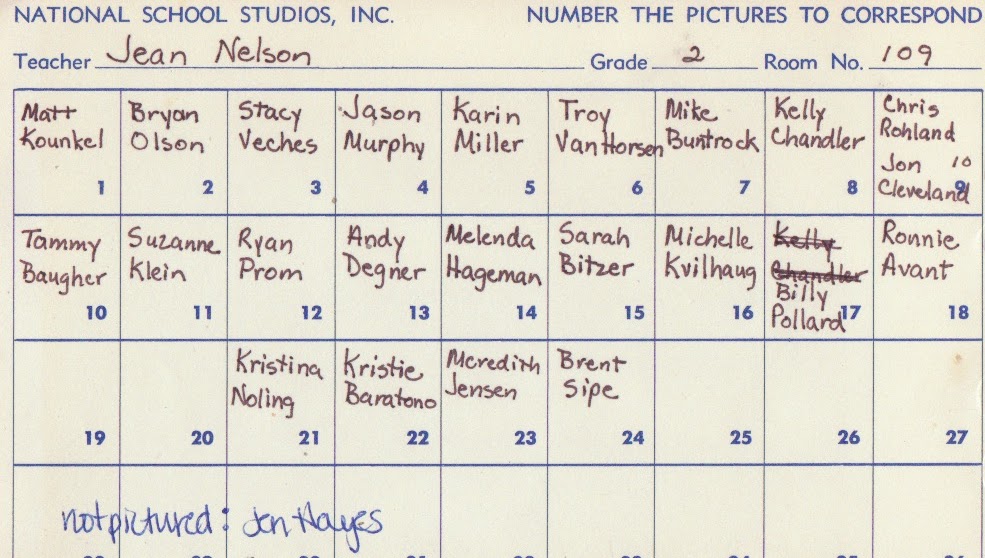 NATIONAL SCHOOL STUDIOS, INC. NUMBER THE PICTURES TO CORRESPOND
Teacher Jean Nelson Grade 2 Room No. 109
Matt Kounkel 1
Bryan Olson 2
Stacy Veches 3
Jason Murphy 4
Karin Miller 5
Troy VanHorsen 6
Mike Buntrock 7
Kelly Chandler 8
Chris Rohland Jon 10 Cleveland 9
Tammy Baugher 10
Suzanne Klein 11
Ryan Prom 12
Andy Degner 13
Melenda Hageman 14
Sarah Bitzer 15
Michelle Kvilhaug 16
Kelly Chandler Billy Pollard 17
Ronnie Avant 18
19
20
Kristina Noling 21
Kristie Baratono 22
Meredith Jensen 23
Brent Sipe 24
25
26
27
not pictured: Jen Hayes